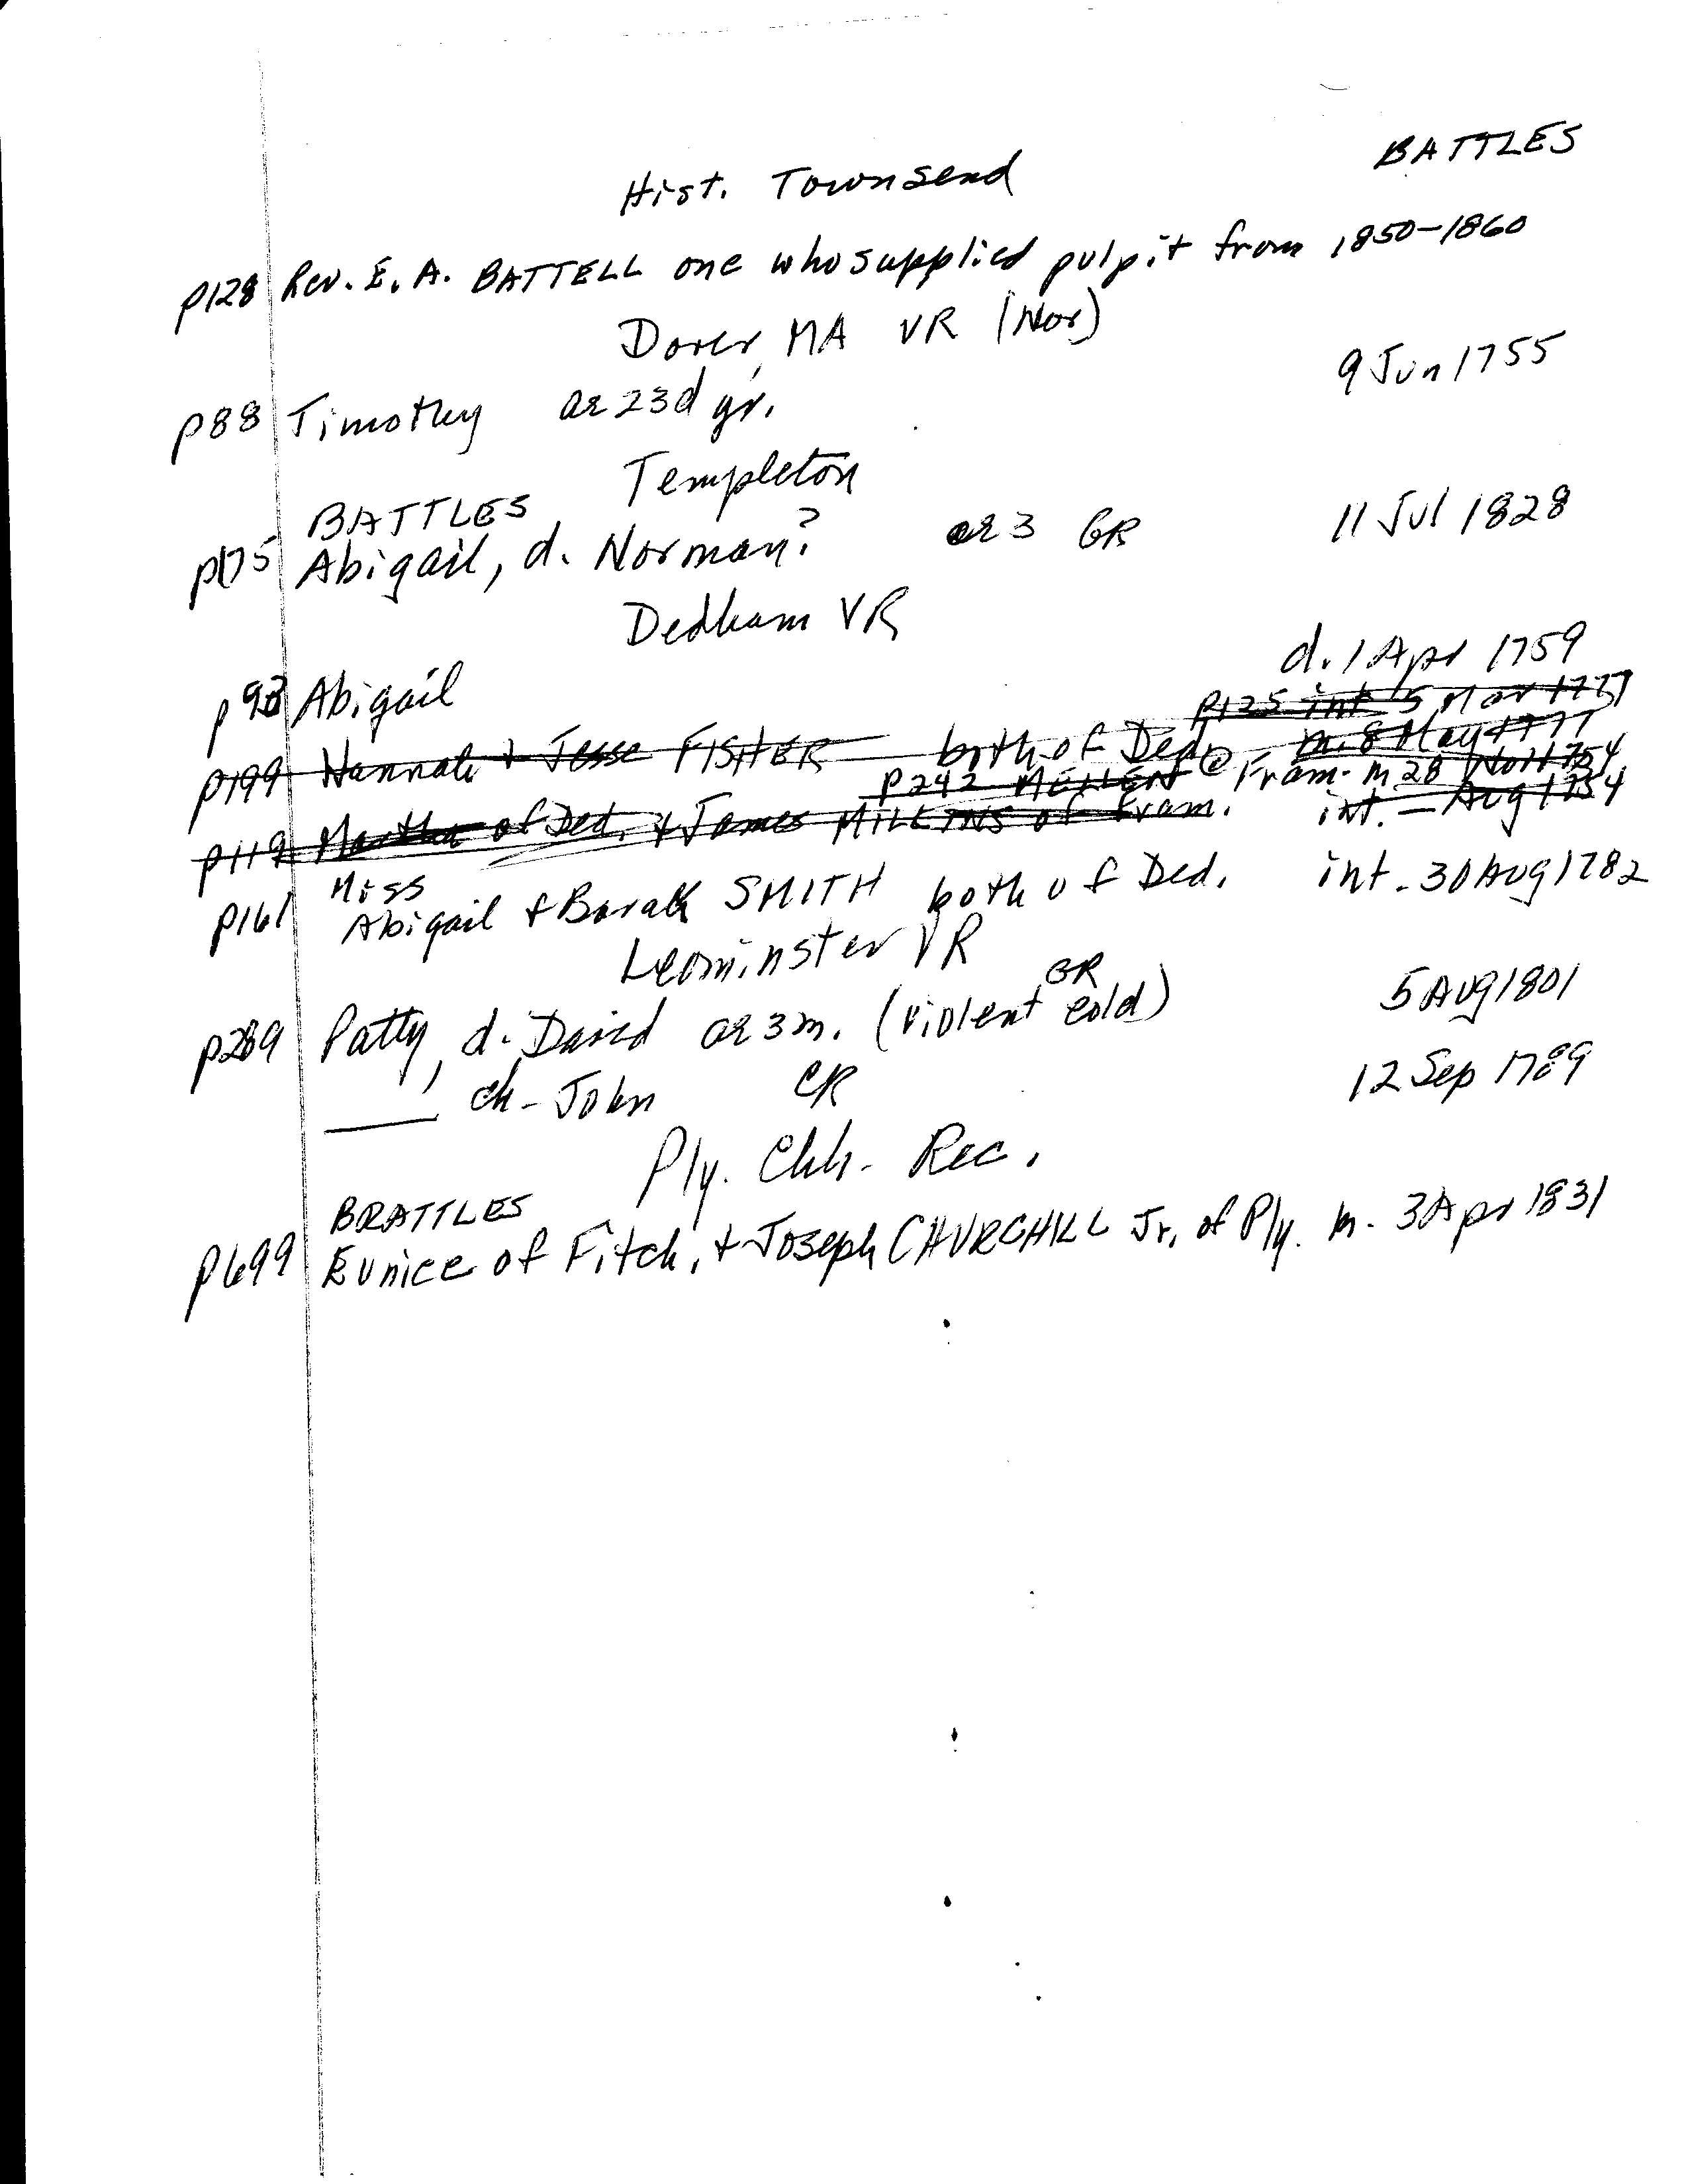 BATTLES
Hist. Townsend
p128 Rev. E. A. BATTELL one who supplied pulpit from 1850-1860
Dover, MA VR (Nor)
p88 Timothy ae 23d yr. 9 Jun 1755
Templeton
BATTLES
p175 Abigail, d. Norman? ae 3 GR 11 Jul 1828
Dedham VR
p93 Abigail d. 1 Apr 1759
p125 int 5 Mar 1777
p199 Hannah + Jesse FISHER both of Ded. m. 8 May 1777
p242 MELLEN @ Fram. m 28 Nov 1754
p119 Martha of Ded. + James MILLINS of Fram. int. - Aug 1754
Miss
p161 Abigail + Barak SMITH both of Ded. int. 30 Aug 1782
Leominster VR
p289 Patty, d. David ae 3 m. (violent cold) GR 5 Aug 1801
____ ch. John CR 12 Sep 1789
Ply. Chh. Rec.
BRATTLES
p699 Eunice of Fitch. + Joseph CHURCHILL Jr. of Ply. m. 3 Apr 1831